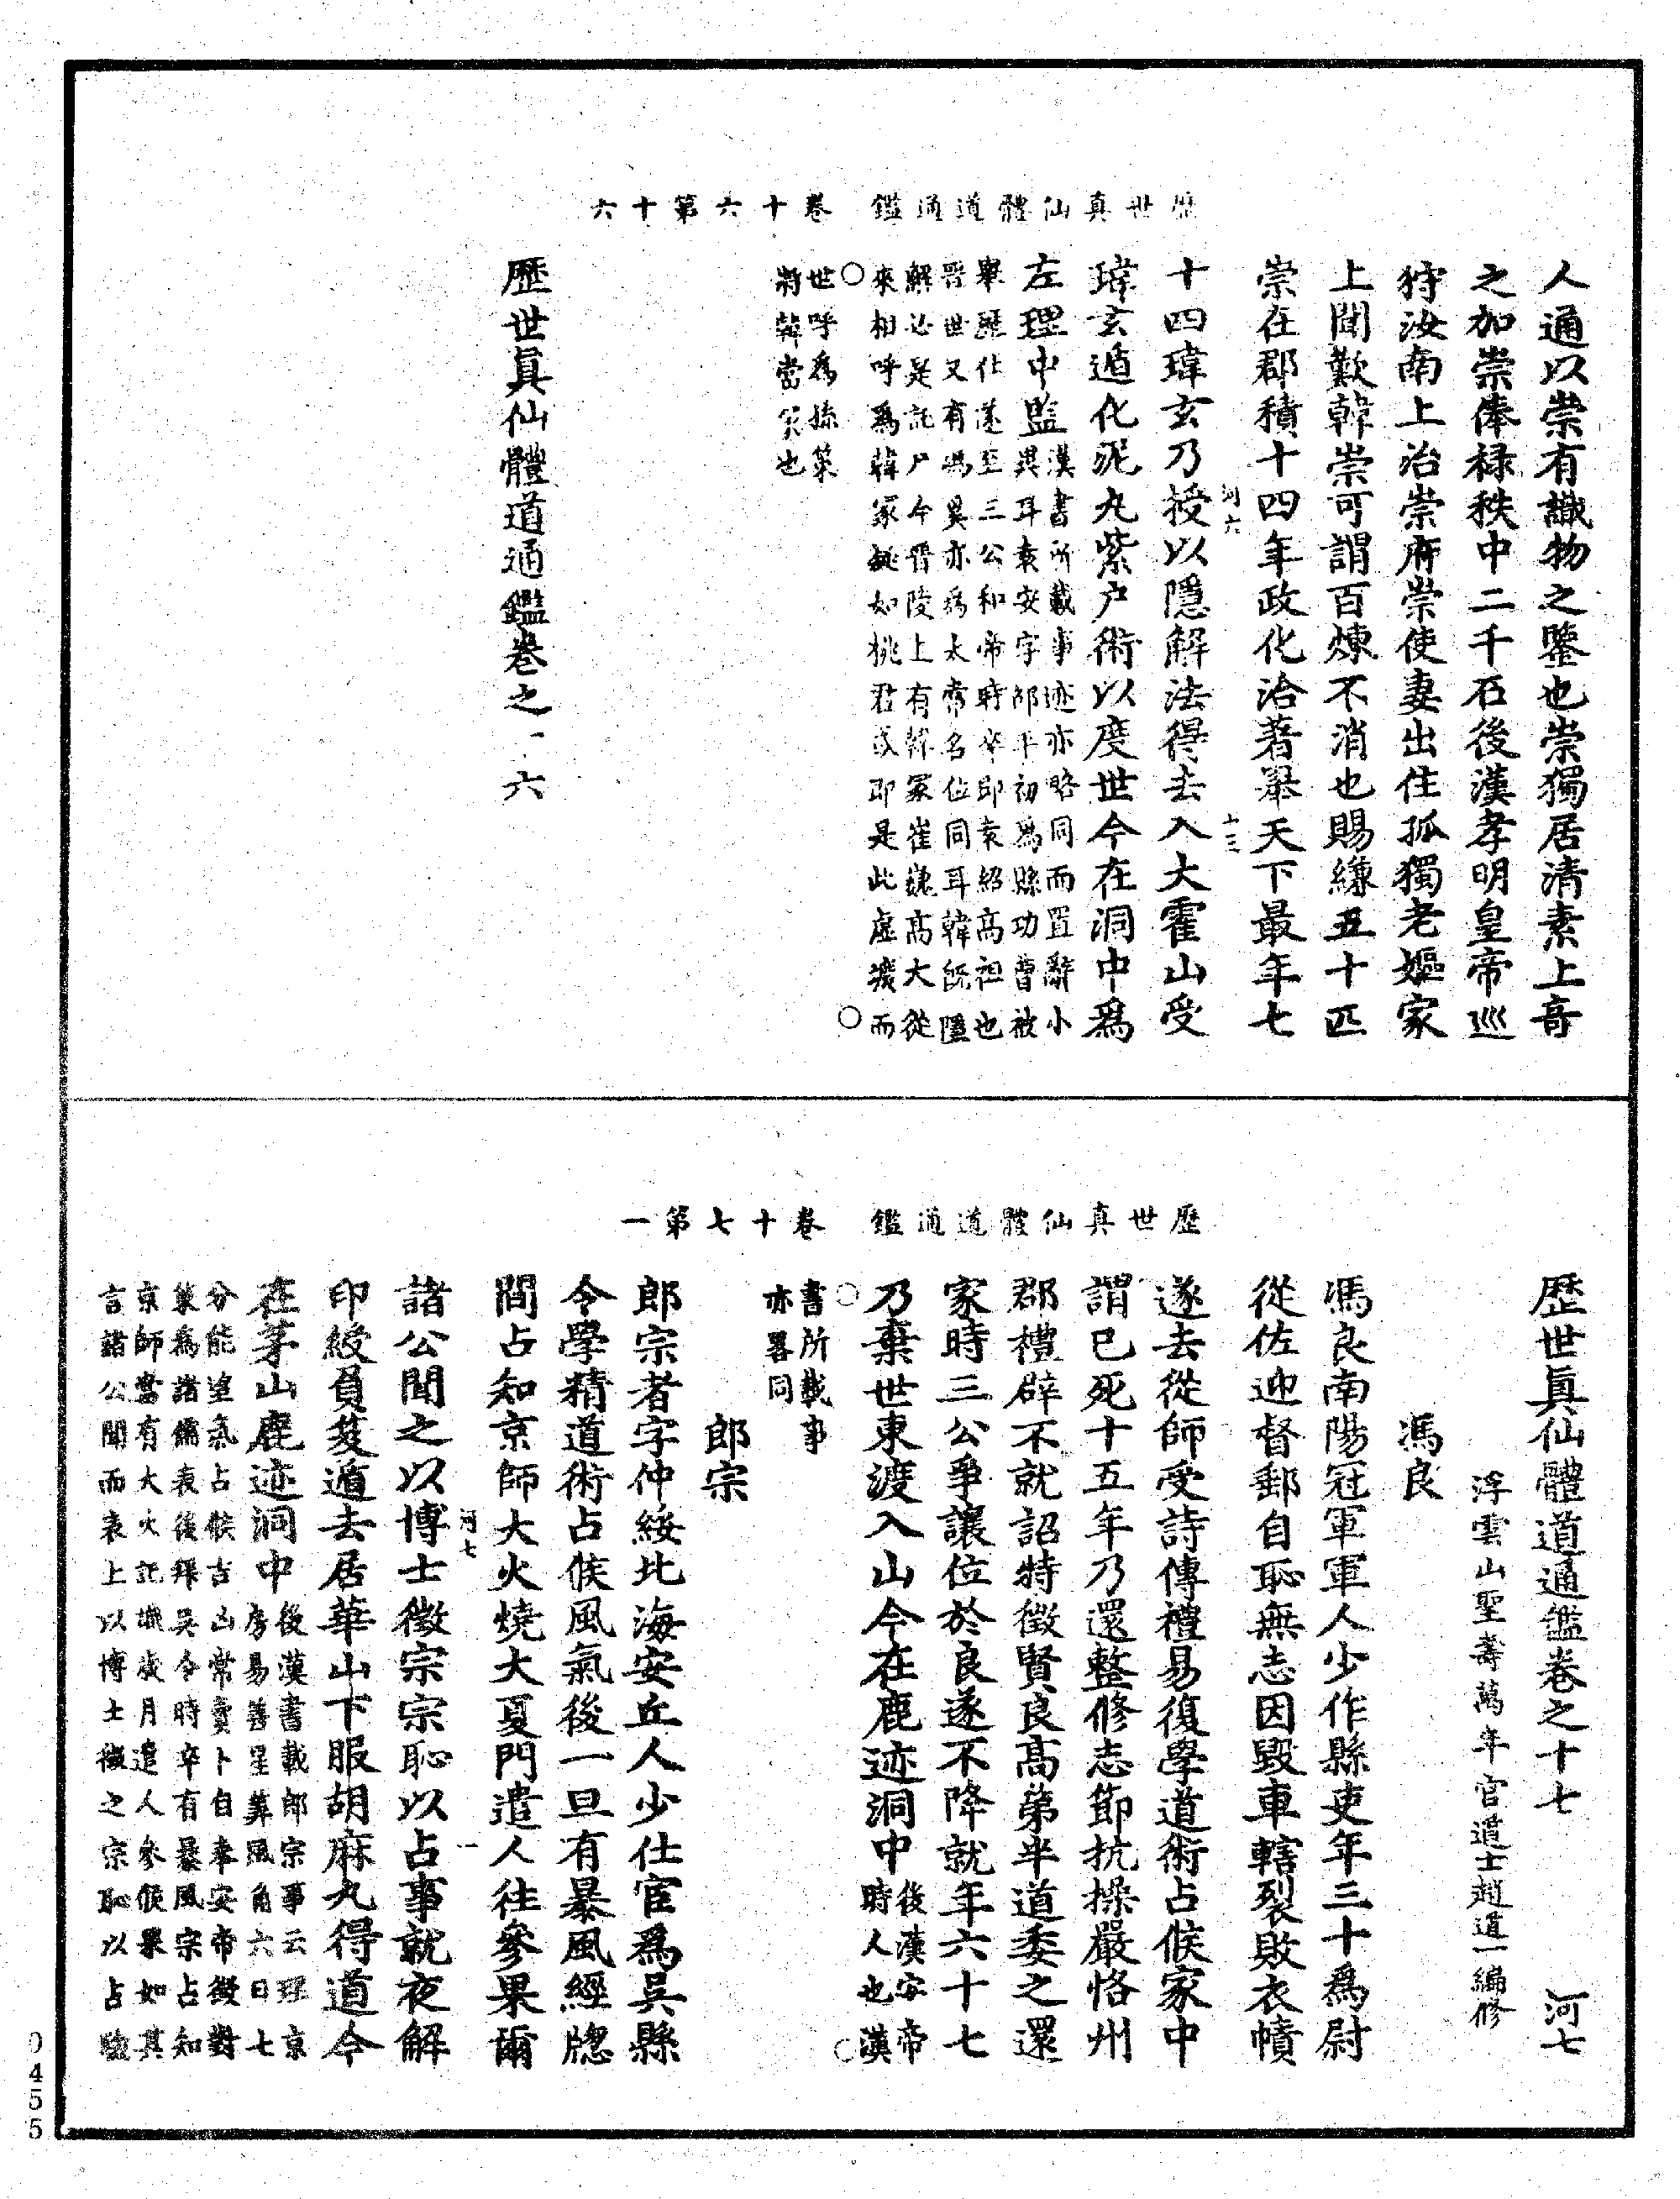 歷世真仙體道通鑑　卷十六第十六
人通以崇有識物之鑒也崇獨居清素上音
之加崇俸祿秩中二千石後漢孝明皇帝巡
狩汝南上治崇府崇使妻出住孤獨老嫗家
上聞歎韓崇可謂百煉不消也賜縑五十匹
崇在郡積十四年政化洽著舉天下最年七
河六　十三
十四瑋玄乃授以隱解法得去入大霍山受
瑋玄遁化泥丸紫户術以度世今在洞中爲
左理中監
漢書所載事迹亦略同而置辭小
異耳袁安字邵平初爲縣功曹被
舉歷仕遂至三公和帝時卒即袁紹高祖也
晉世又有馮異亦爲太常名位同耳韓既隱
解必是託尸今晉陵上有韓冢崔巍高大從
來相呼爲韓冢疑如桃君或即是此虛壙而
○
○
世呼爲孫策
將韓當冢也
歷世眞仙體道通鑑卷之十六
歷世真仙體道通鑑　卷十七第一
歷世眞仙體道通鑑卷之十七　河七
浮雲山聖壽萬年宮道士趙道一編修
馮良
馮良南陽冠軍軍人少作縣吏年三十爲尉
從佐迎督郵自恥無志因毀車轄裂敗衣幘
遂去從師受詩傳禮易復學道術占候家中
謂已死十五年乃還整修志節抗操嚴恪州
郡禮辟不就詔特徵賢良高第半道委之還
家時三公爭讓位於良遂不降就年六十七
乃棄世東渡入山今在鹿迹洞中
後漢安帝
時人也漢
○
○
書所載事
亦畧同
郎宗
郎宗者字仲綏北海安丘人少仕宦爲吳縣
令學精道術占候風氣後一旦有暴風經牕
間占知京師大火燒大夏門遣人往參果爾
河七　一
諸公聞之以博士徵宗宗恥以占事就夜解
印綬負笈遁去居華山下服胡麻丸得道今
在茅山鹿迹洞中
後漢書載郎宗事云理京
房易善星筭風角六日七
分能望氣占候吉凶常賣卜自奉安帝徵對
策爲諸儒表後拜吳令時卒有暴風宗占知
京師當有大火記識歲月遣人參候果如其
言諸公聞而表上以博士徵之宗恥以占驗
0455